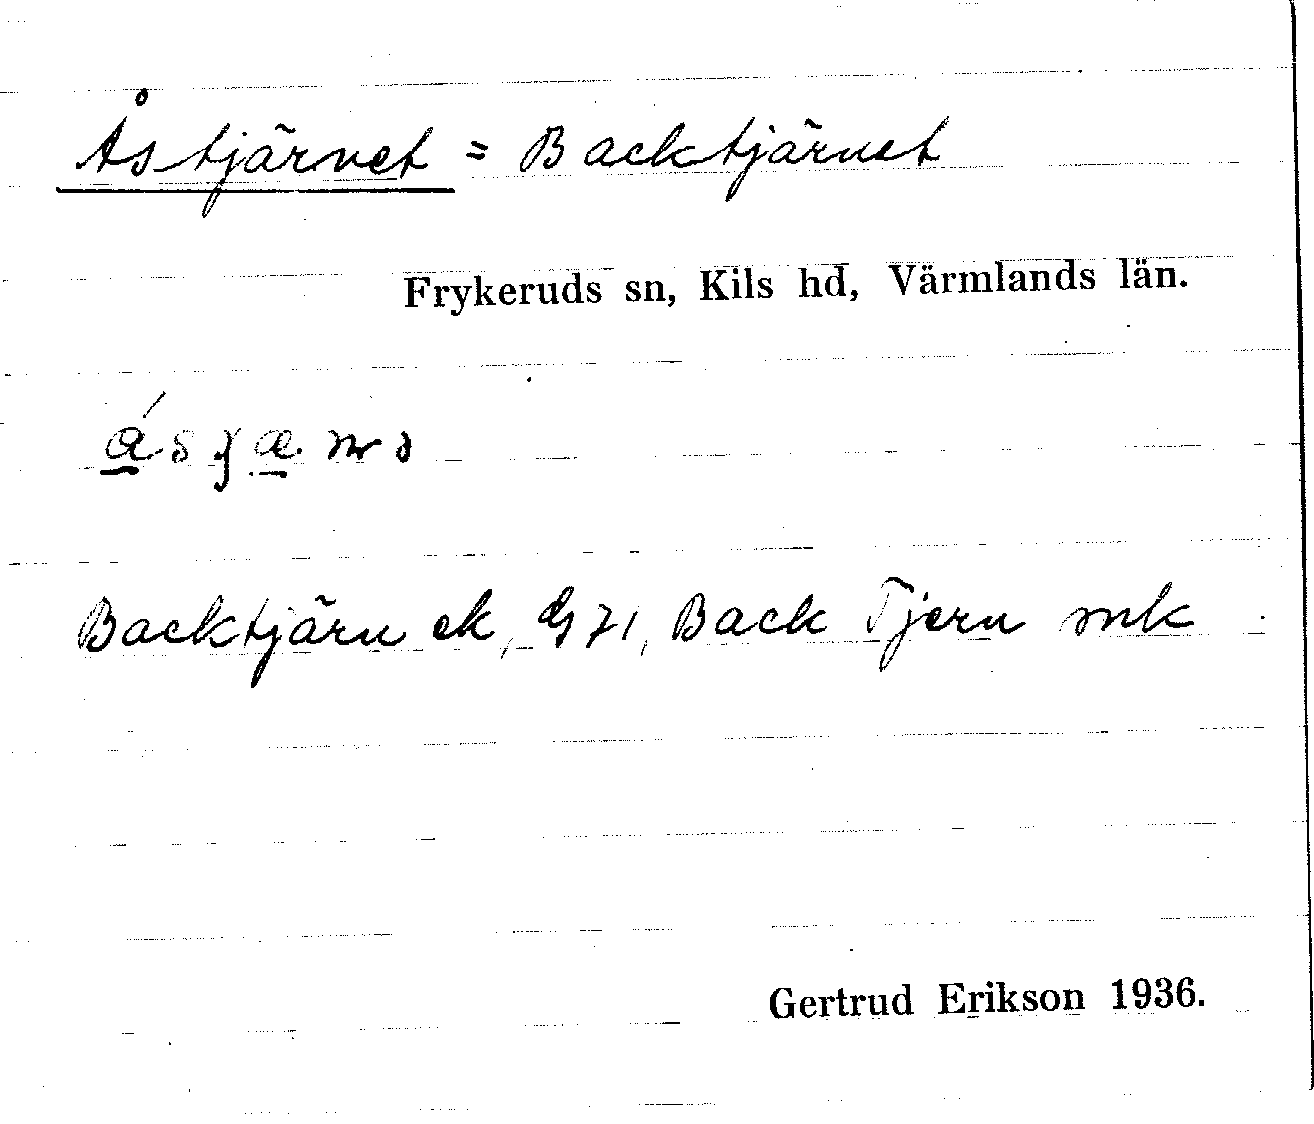 Åstjärnet = Backtjärnet
Frykeruds sn, Kils hd, Värmlands län.
Backtjärn ek, G 71, Back Tjern mk
Gertrud Erikson 1936.